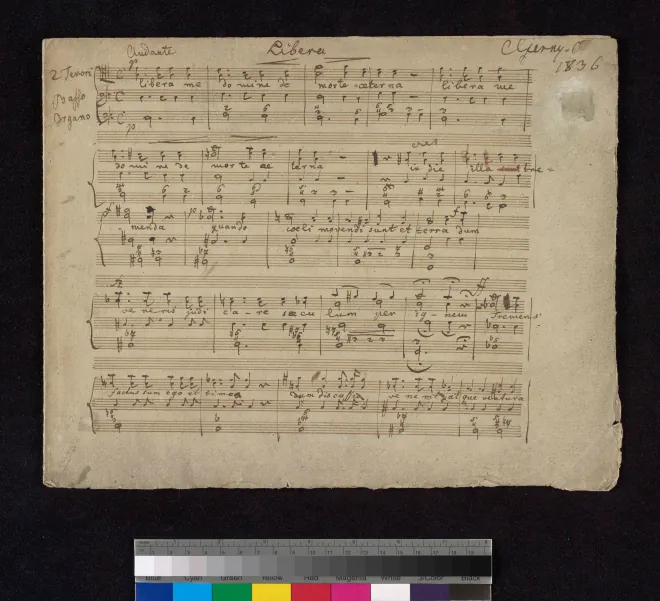 Andante Libera C Czerny
1836
2 Tenori
Basso
Organo
libera me do mine de morte æterna libera me
do mi ne de mor te æ terna in die illa tre=
menda quando coeli movendi sunt et terra dum
ve neris judi ca-re sæcu lum per ig-nem Tremens
factus sum ego et timeo dum discussio ve ne rit atque ventura
Blue Cyan Green Yellow Red Magenta White 3/Color Black